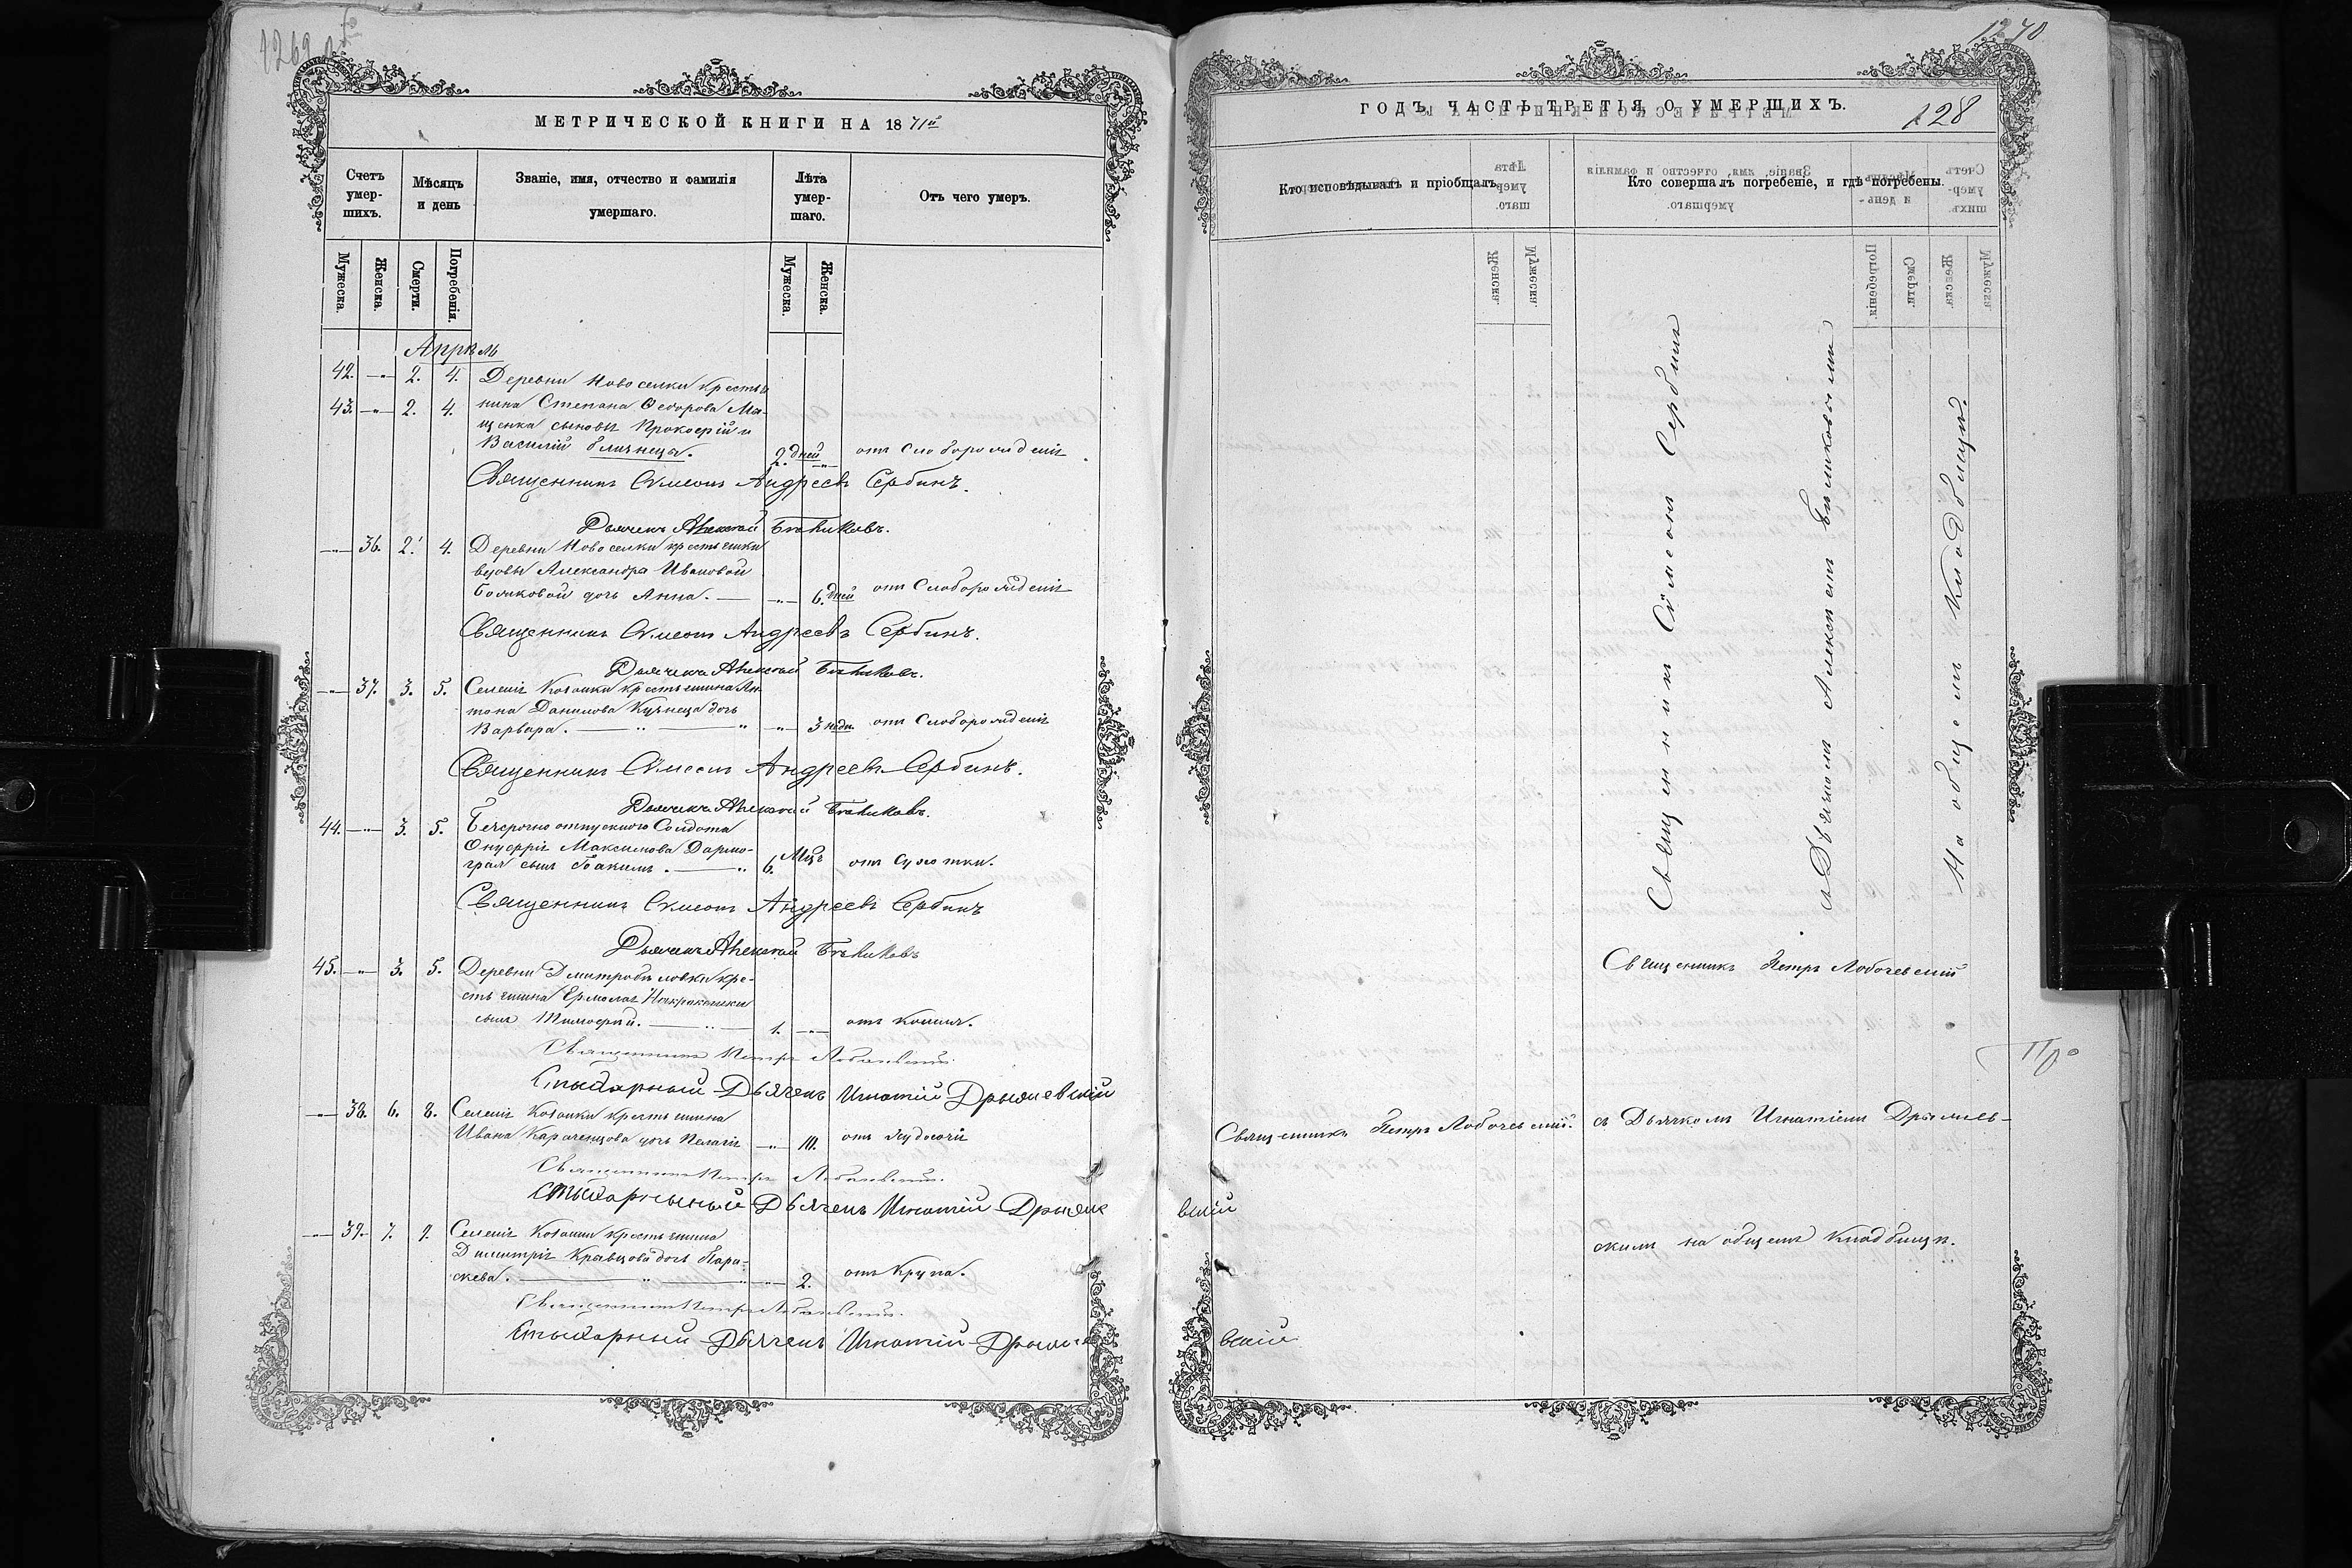 1269 об
МЕТРИЧЕСКОЙ КНИГИ НА 1871й
Счетъ умер-шихъ.
Мѣсяцъ и день
Званіе, имя, отчество и фамилія умершаго.
Лѣта умер-шаго.
Отъ чего умеръ.
Мужеска.
Женска.
Смерти.
Погребенія.
Мужеска.
Женска.
Апрѣль
42. —„— 2. 4. Деревни Новоселки крестья
43. —„— 2. 4. нина Степана Ѳедорова Ма-
щенка сыновья Прокофій и
Василій близнеца. 2. дней —„— отъ Слаборожденія
Священникъ Симеонъ Андреевъ Сербинъ.
Дьячекъ Алексѣй Бѣликовъ.
—„— 36. 2. 4. Деревни Новоселки крестьянки
вдовы Александра Ивановой
Поляковой дочь Анна. —„— 6. дней отъ Слаборожденія
Священникъ Симеонъ Андреевъ Сербинъ.
Дьячекъ Алексѣй Бѣликовъ.
—„— 37. 3. 5. Селенія Козанки крестьянина Ан
тона Данилова Кузнеца дочь
Варвара. —„— 3 недѣл. отъ Слаборожденія
Священникъ Симеонъ Андреевъ Сербинъ.
Дьячекъ Алексѣй Бѣликовъ.
44. —„— 3. 5. Безсрочно отпускного Солдата
Онуфрія Максимова Дармо-
грая сынъ Іоакимъ. 6. Мцъ отъ Сухотки.
Священникъ Симеонъ Андреевъ Сербинъ
Дьячекъ Алексѣй Бѣликовъ
45. —„— 3. 5. Деревни Дмитробѣловки кре-
стьянина Ермолая
сынъ Тимофей. 1. —„— отъ Кашля.
Священникъ Петръ Лобачевскій.
Стихарный Дьячекъ Игнатій Дрымевскій
—„— 38. 6. 8. Селенія Козанки крестьянина
Ивана Караченцова дочь Пелагія —„— 10. отъ Худосочія
Священникъ Петръ Лобачевскій.
Стихарный Дьячекъ Игнатій Дрыме
—„— 39. 7. 9. Селенія Козанки крестьянина
Димитрія Кравцова дочь Пара-
скева. —„— 2. отъ Крупа.
Священникъ Петръ Лобачевскій.
Стихарный Дьячекъ Игнатій Дрыме
1270
ГОДЪ, ЧАСТЬ ТРЕТІЯ О УМЕРШИХЪ.
128
Кто исповѣдывалъ и пріобщалъ.
Кто совершалъ погребеніе, и гдѣ погребены.
Священникъ Симеонъ Сербинъ
съ Дьячкомъ Алексѣемъ Бѣликовымъ
На общемъ Кладбищѣ.
Священникъ Петръ Лобачевскій
Священникъ Петръ Лобачевскій.
съ Дьячкомъ Игнатіемъ Дрымев-
вскій
скимъ на общемъ Кладбищѣ.
вскій